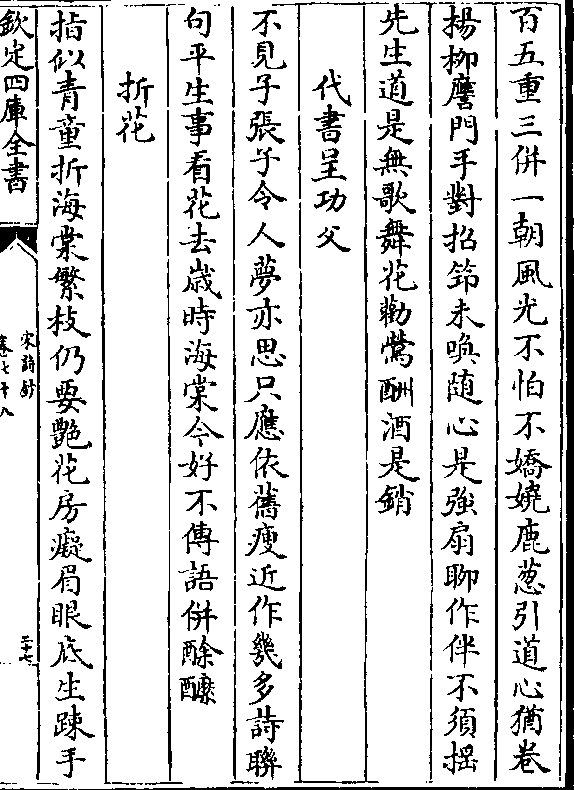 百五重三併一朝風光不怕不嬌嬈鹿葱引道心猶卷
楊柳譍門手對招節未喚随心是強扇聊作伴不須揺
先生道是無歌舞花勸鶯酬酒是銷
代書呈功父
不見子張子令人夢亦思只應依舊瘦近作幾多詩聯
句平生事看花去歳時海棠今好不傳語併酴醿
折花
指似青童折海棠繁枝仍要艶花房癡眉眼底生踈手
欽定四庫全書
宋詩鈔
卷七十八
三十七